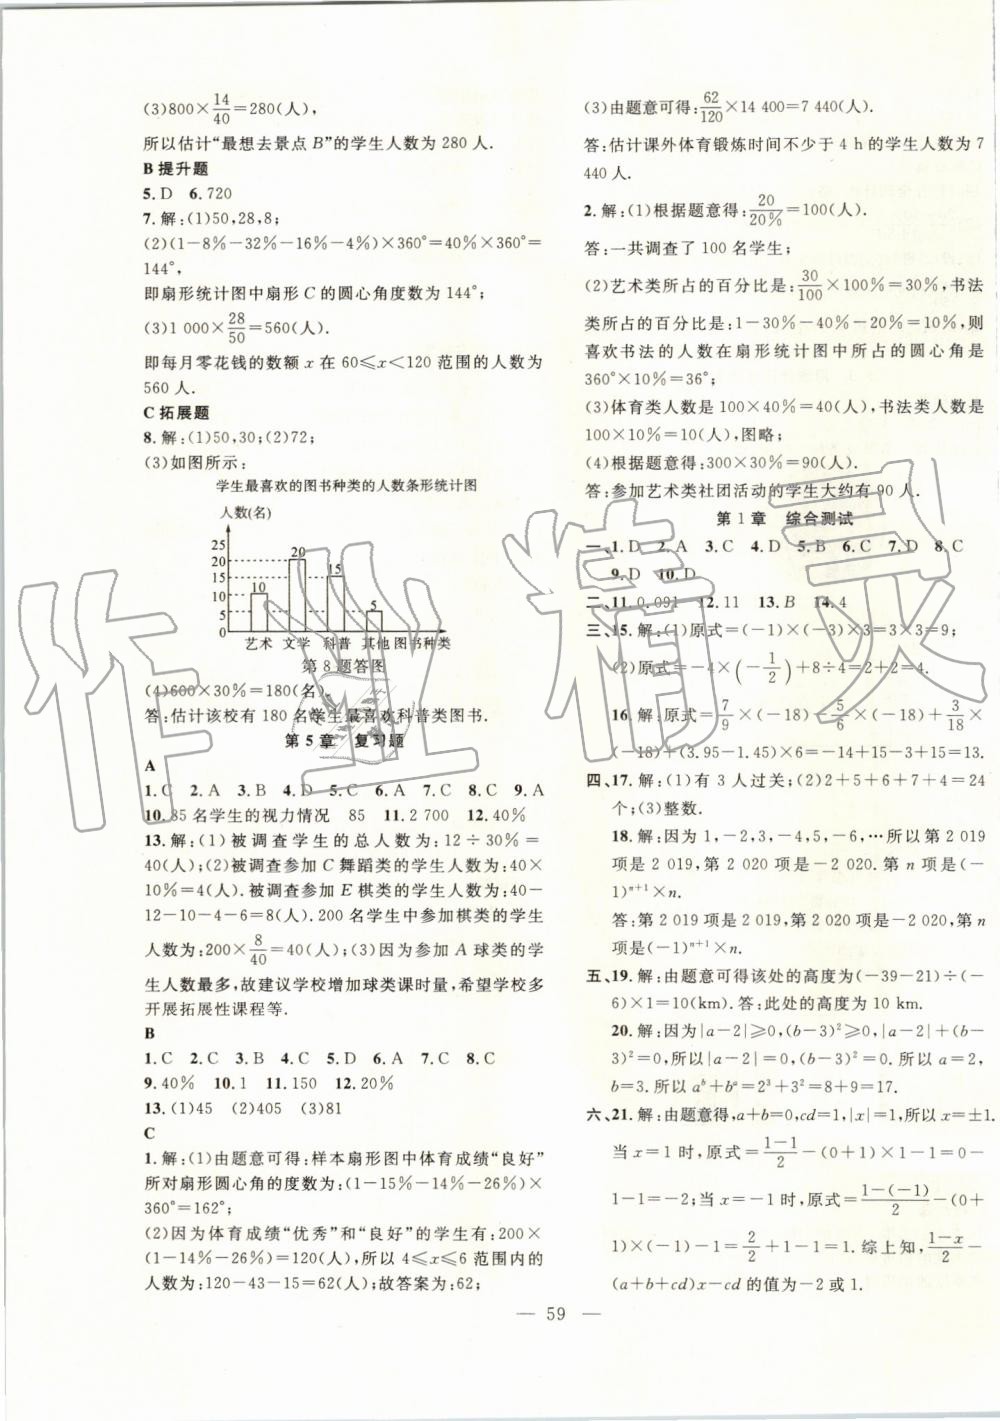 (3)800×14/40=280(人),
所以估计“最想去景点B”的学生人数为280人.
B提升题
5.D 6.720
7.解:(1)50,28,8;
(2)(1-8%-32%-16%-4%)×360°=40%×360°=
144°,
即扇形统计图中扇形C的圆心角度数为144°;
(3)1 000×28/50=560(人).
即每月零花钱的数额x在60≤x<120范围的人数为
560人.
C拓展题
8.解:(1)50,30;(2)72;
(3)如图所示:
学生最喜欢的图书种类的人数条形统计图
人数(名)
25
20 20
15 15
10 10
5 5
艺术 文学 科普 其他 图书种类
第8题答图
(4)600×30%=180(名).
答:估计该校有180名学生最喜欢科普类图书.
第5章 复习题
A
1.C 2.A 3.B 4.D 5.C 6.A 7.C 8.C 9.A
10.85名学生的视力情况 85 11.2 700 12.40%
13.解:(1)被调查学生的总人数为:12÷30%=
40(人);(2)被调查参加C舞蹈类的学生人数为:40×
10%=4(人).被调查参加E棋类的学生人数为:40-
12-10-4-6=8(人).200名学生中参加棋类的学生
人数为:200×8/40=40(人);(3)因为参加A球类的学
生人数最多,故建议学校增加球类课时量,希望学校多
开展拓展性课程等.
B
1.C 2.C 3.B 4.C 5.D 6.A 7.C 8.C
9.40% 10.1 11.150 12.20%
13.(1)45 (2)405 (3)81
C
1.解:(1)由题意可得:样本扇形图中体育成绩“良好”
所对扇形圆心角的度数为:(1-15%-14%-26%)×
360°=162°;
(2)因为体育成绩“优秀”和“良好”的学生有:200×
(1-14%-26%)=120(人),所以4≤x≤6范围内的
人数为:120-43-15=62(人);故答案为:62;
(3)由题意可得:62/120×14 400=7 440(人).
答:估计课外体育锻炼时间不少于4 h的学生人数为7
440人.
2.解:(1)根据题意得:20/20%=100(人).
答:一共调查了100名学生;
(2)艺术类所占的百分比是:30/100×100%=30%,书法
类所占的百分比是:1-30%-40%-20%=10%,则
喜欢书法的人数在扇形统计图中所占的圆心角是
360°×10%=36°;
(3)体育类人数是100×40%=40(人),书法类人数是
100×10%=10(人),图略;
(4)根据题意得:300×30%=90(人).
答:参加艺术类社团活动的学生大约有90人.
第1章 综合测试
一、1.D 2.A 3.C 4.D 5.B 6.C 7.D 8.C
9.D 10.D
二、11.0.091 12.11 13.B 14.4
三、15.解:(1)原式=(-1)×(-3)×3=3×3=9;
(2)原式=-4×(-1/2)+8÷4=2+2=4.
16.解:原式=7/9×(-18)-5/6×(-18)+3/18×
(-18)+(3.95-1.45)×6=-14+15-3+15=13.
四、17.解:(1)有3人过关;(2)2+5+6+7+4=24
个;(3)整数.
18.解:因为1,-2,3,-4,5,-6,…所以第2 019
项是2 019,第2 020项是-2 020.第n项是(-
1)ⁿ⁺¹×n.
答:第2 019项是2 019,第2 020项是-2 020,第n
项是(-1)ⁿ⁺¹×n.
五、19.解:由题意可得该处的高度为(-39-21)÷(-
6)×1=10(km).答:此处的高度为10 km.
20.解:因为|a-2|≥0,(b-3)²≥0,|a-2|+(b-
3)²=0,所以|a-2|=0,(b-3)²=0.所以a=2,
b=3.所以aᵇ+bᵃ=2³+3²=8+9=17.
六、21.解:由题意得,a+b=0,cd=1,|x|=1,所以x=±1.
当x=1时,原式=(1-1)/2-(0+1)×1-1=0-
1-1=-2;当x=-1时,原式=(1-(-1))/2-(0+
1)×(-1)-1=2/2+1-1=1.综上知,(1-x)/2-
(a+b+cd)x-cd的值为-2或1.
— 59 —
作业精灵